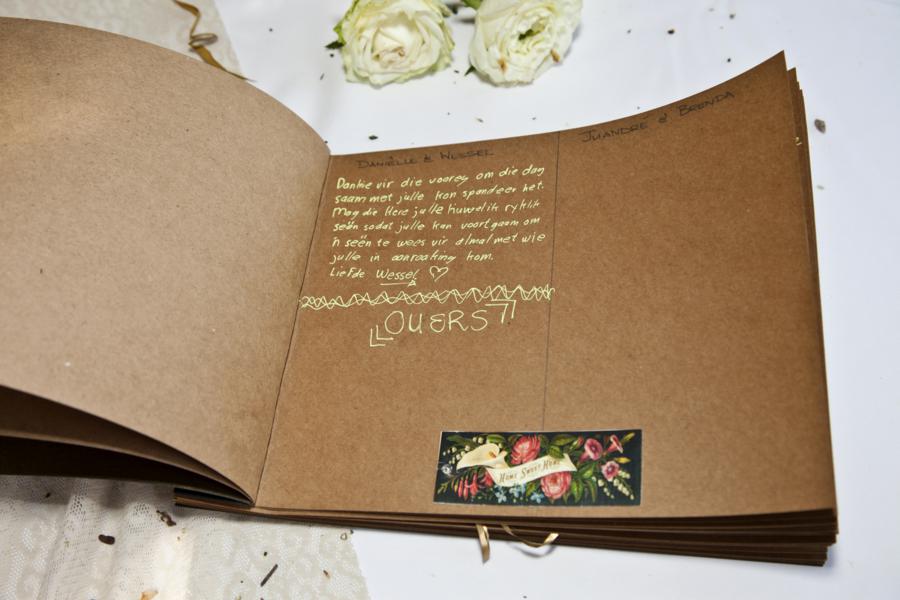 DANIËLLE & WESSEL
Dankie vir die voorreg om die dag
saam met julle kon spandeer het.
Mag die Here julle huwelik ryklik
seën sodat julle kan voortgaan om
'n seën te wees vir almal met wie
julle in aanraking kom.
Liefde Wessel
OUERS
JUANDRÉ & BRENDA
HOME SWEET HOME